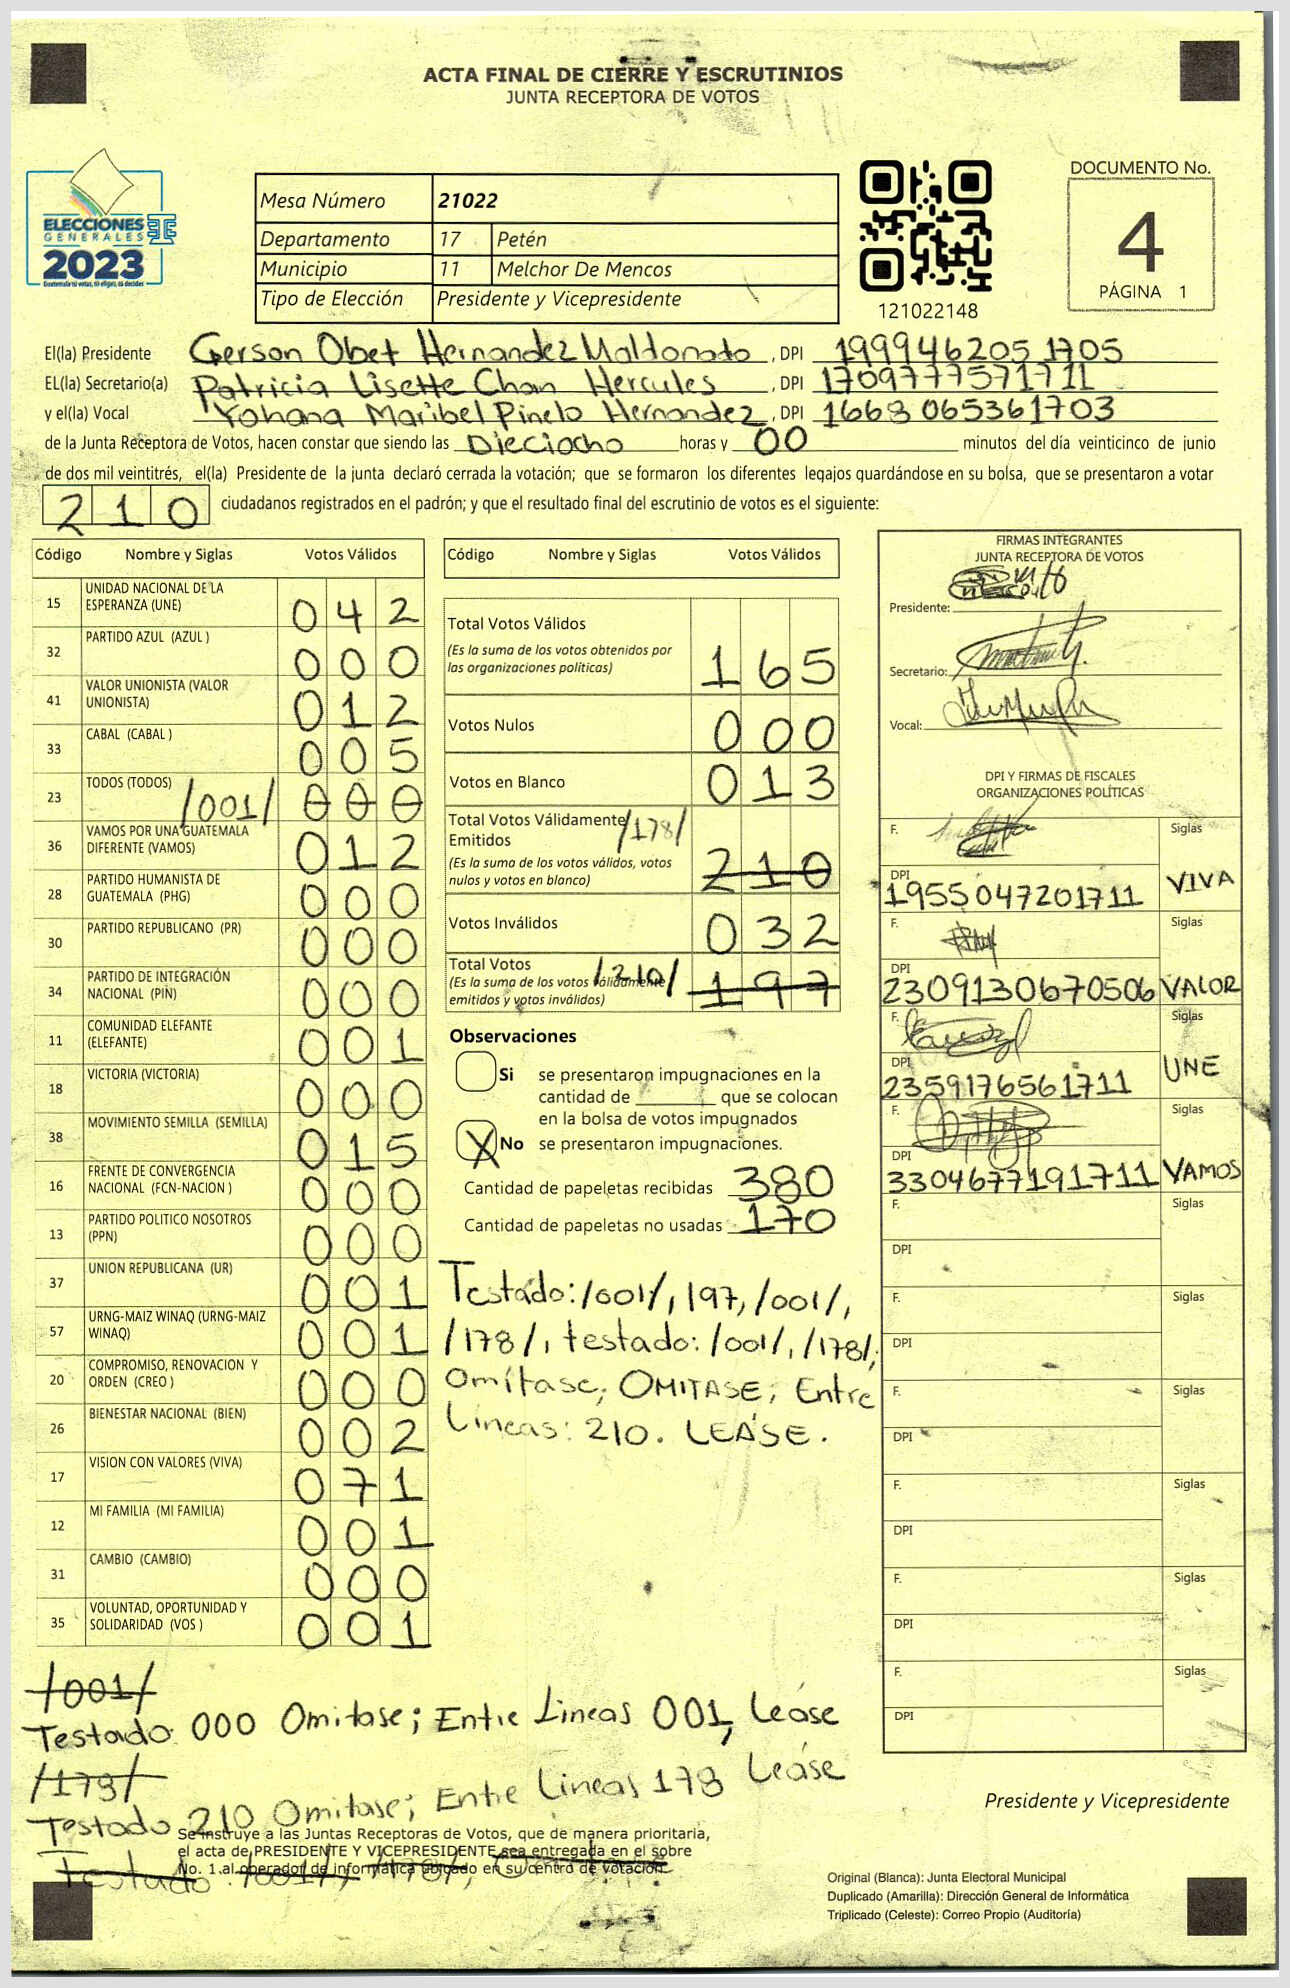 ACTA FINAL DE CIERRE Y ESCRUTINIOS
JUNTA RECEPTORA DE VOTOS
ELECCIONES
GENERALES
2023
Mesa Número 21022
Departamento 17 Petén
Municipio 11 Melchor De Mencos
Tipo de Elección Presidente y Vicepresidente
121022148
DOCUMENTO No.
4
PÁGINA 1
El(la) Presidente Gerson Obet Hernandez Maldonado , DPI 199946205 1705
EL(la) Secretario(a) Patricia Lisette Chan Hercules , DPI 1709777571711
y el(la) Vocal Yohana Maribel Pinelo Hernandez , DPI 1663065361703
de la Junta Receptora de Votos, hacen constar que siendo las Dieciocho horas y 00 minutos del día veinticinco de junio
de dos mil veintitrés, el(la) Presidente de la junta declaró cerrada la votación; que se formaron los diferentes legajos guardándose en su bolsa, que se presentaron a votar
210 ciudadanos registrados en el padrón; y que el resultado final del escrutinio de votos es el siguiente:
Código Nombre y Siglas Votos Válidos
15 UNIDAD NACIONAL DE LA ESPERANZA (UNE) 042
32 PARTIDO AZUL (AZUL ) 000
41 VALOR UNIONISTA (VALOR UNIONISTA) 012
33 CABAL (CABAL ) 005
23 TODOS (TODOS) /001/ 000
36 VAMOS POR UNA GUATEMALA DIFERENTE (VAMOS) 012
28 PARTIDO HUMANISTA DE GUATEMALA (PHG) 000
30 PARTIDO REPUBLICANO (PR) 000
34 PARTIDO DE INTEGRACIÓN NACIONAL (PIN) 000
11 COMUNIDAD ELEFANTE (ELEFANTE) 001
18 VICTORIA (VICTORIA) 000
38 MOVIMIENTO SEMILLA (SEMILLA) 015
16 FRENTE DE CONVERGENCIA NACIONAL (FCN-NACION ) 000
13 PARTIDO POLITICO NOSOTROS (PPN) 000
37 UNION REPUBLICANA (UR) 001
57 URNG-MAIZ WINAQ (URNG-MAIZ WINAQ) 001
20 COMPROMISO, RENOVACION Y ORDEN (CREO ) 000
26 BIENESTAR NACIONAL (BIEN) 002
17 VISION CON VALORES (VIVA) 071
12 MI FAMILIA (MI FAMILIA) 001
31 CAMBIO (CAMBIO) 000
35 VOLUNTAD, OPORTUNIDAD Y SOLIDARIDAD (VOS ) 001
Código Nombre y Siglas Votos Válidos
Total Votos Válidos
(Es la suma de los votos obtenidos por
las organizaciones políticas) 165
Votos Nulos 000
Votos en Blanco 013
Total Votos Válidamente /178/
Emitidos
(Es la suma de los votos válidos, votos
nulos y votos en blanco) 210
Votos Inválidos 032
Total Votos /210/
(Es la suma de los votos válidamente
emitidos y votos inválidos) 197
Observaciones
Si se presentaron impugnaciones en la
cantidad de ________ que se colocan
en la bolsa de votos impugnados
X No se presentaron impugnaciones.
Cantidad de papeletas recibidas 380
Cantidad de papeletas no usadas 170
Testado: /001/, 197, /001/,
/178/, testado: /001/, /178/;
Omítase; OMITASE; Entre
Lineas: 210. LEÁSE.
FIRMAS INTEGRANTES
JUNTA RECEPTORA DE VOTOS
Presidente:
Secretario:
Vocal:
DPI Y FIRMAS DE FISCALES
ORGANIZACIONES POLÍTICAS
F. Siglas
DPI 1955047201711 VIVA
F. Siglas
DPI 2309130670506 VALOR
F. Siglas
DPI 2359176561711 UNE
F. Siglas
DPI 3304677191711 VAMOS
F. Siglas
DPI
F. Siglas
DPI
F. Siglas
DPI
F. Siglas
DPI
F. Siglas
DPI
F. Siglas
DPI
/001/
Testado: 000 Omitase; Entre Lineas 001, Leáse
/178/
Testado 210 Omitase; Entre Lineas 178 Leáse
Se instruye a las Juntas Receptoras de Votos, que de manera prioritaria,
el acta de PRESIDENTE Y VICEPRESIDENTE sea entregada en el sobre
No. 1 al operador de informática ubicado en su centro de votación.
Testado: /001/, /178/,
Presidente y Vicepresidente
Original (Blanca): Junta Electoral Municipal
Duplicado (Amarilla): Dirección General de Informática
Triplicado (Celeste): Correo Propio (Auditoría)